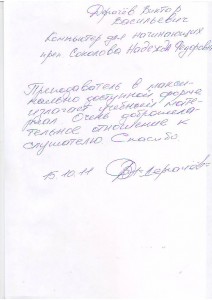 Дорогов Виктор
Васильевич
Компьютер для начинающих
преп. Соколова Надежда Федоровна
Преподаватель в макси-
мально доступной форме
излагает учебный мате-
риал Очень доброжела-
тельное отношение к
слушателю Спасибо
15.10.11